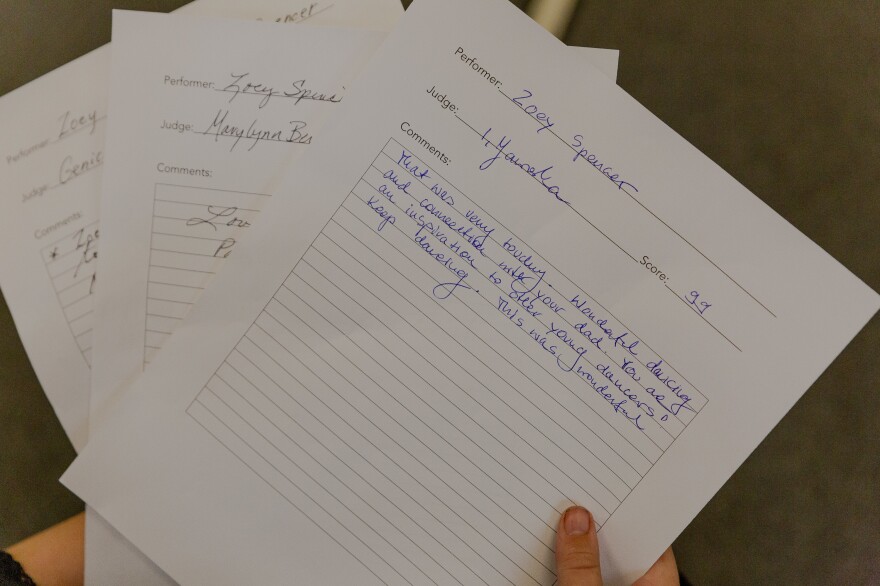 Performer: Zoey Spencer
Judge: I, Yamella
Score: 99
Comments:
That was very touchy. Wonderful dancing
and connection with your dad. You as
an inspiration to other young dancers.
Keep dancing. This was wonderful
Performer: Zoey
Judge: Marylynn
Comments:
Performer: Zoey
Judge: Genie
Comments: